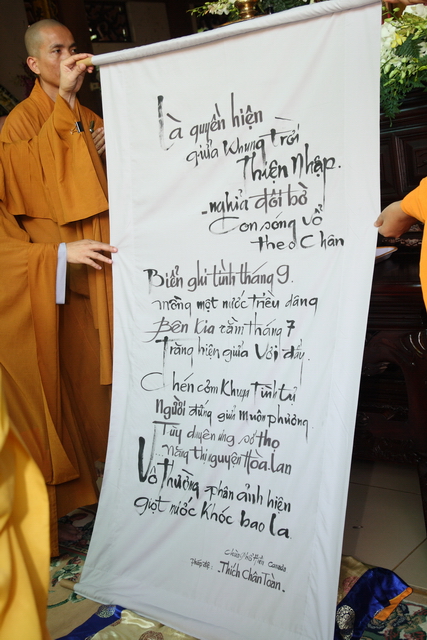 Là quyền hiện
giữa khung trời
Thiền Nhập.
- nghĩa đôi bờ
Con sóng vỗ
theo Chân
Biển ghi tình tháng 9.
mồng một nước triều dâng
Bên kia rằm tháng 7
Trăng hiện giữa vơi đầy.
Chén cơm Khuya Tình tự
Người đứng giữa muôn phương
Tùy duyên ứng số thọ
thị nguyện Hòa Lan
Vô Thường phản ảnh hiện
giọt nước khóc bao la
Canada
Thích Chân Toàn.